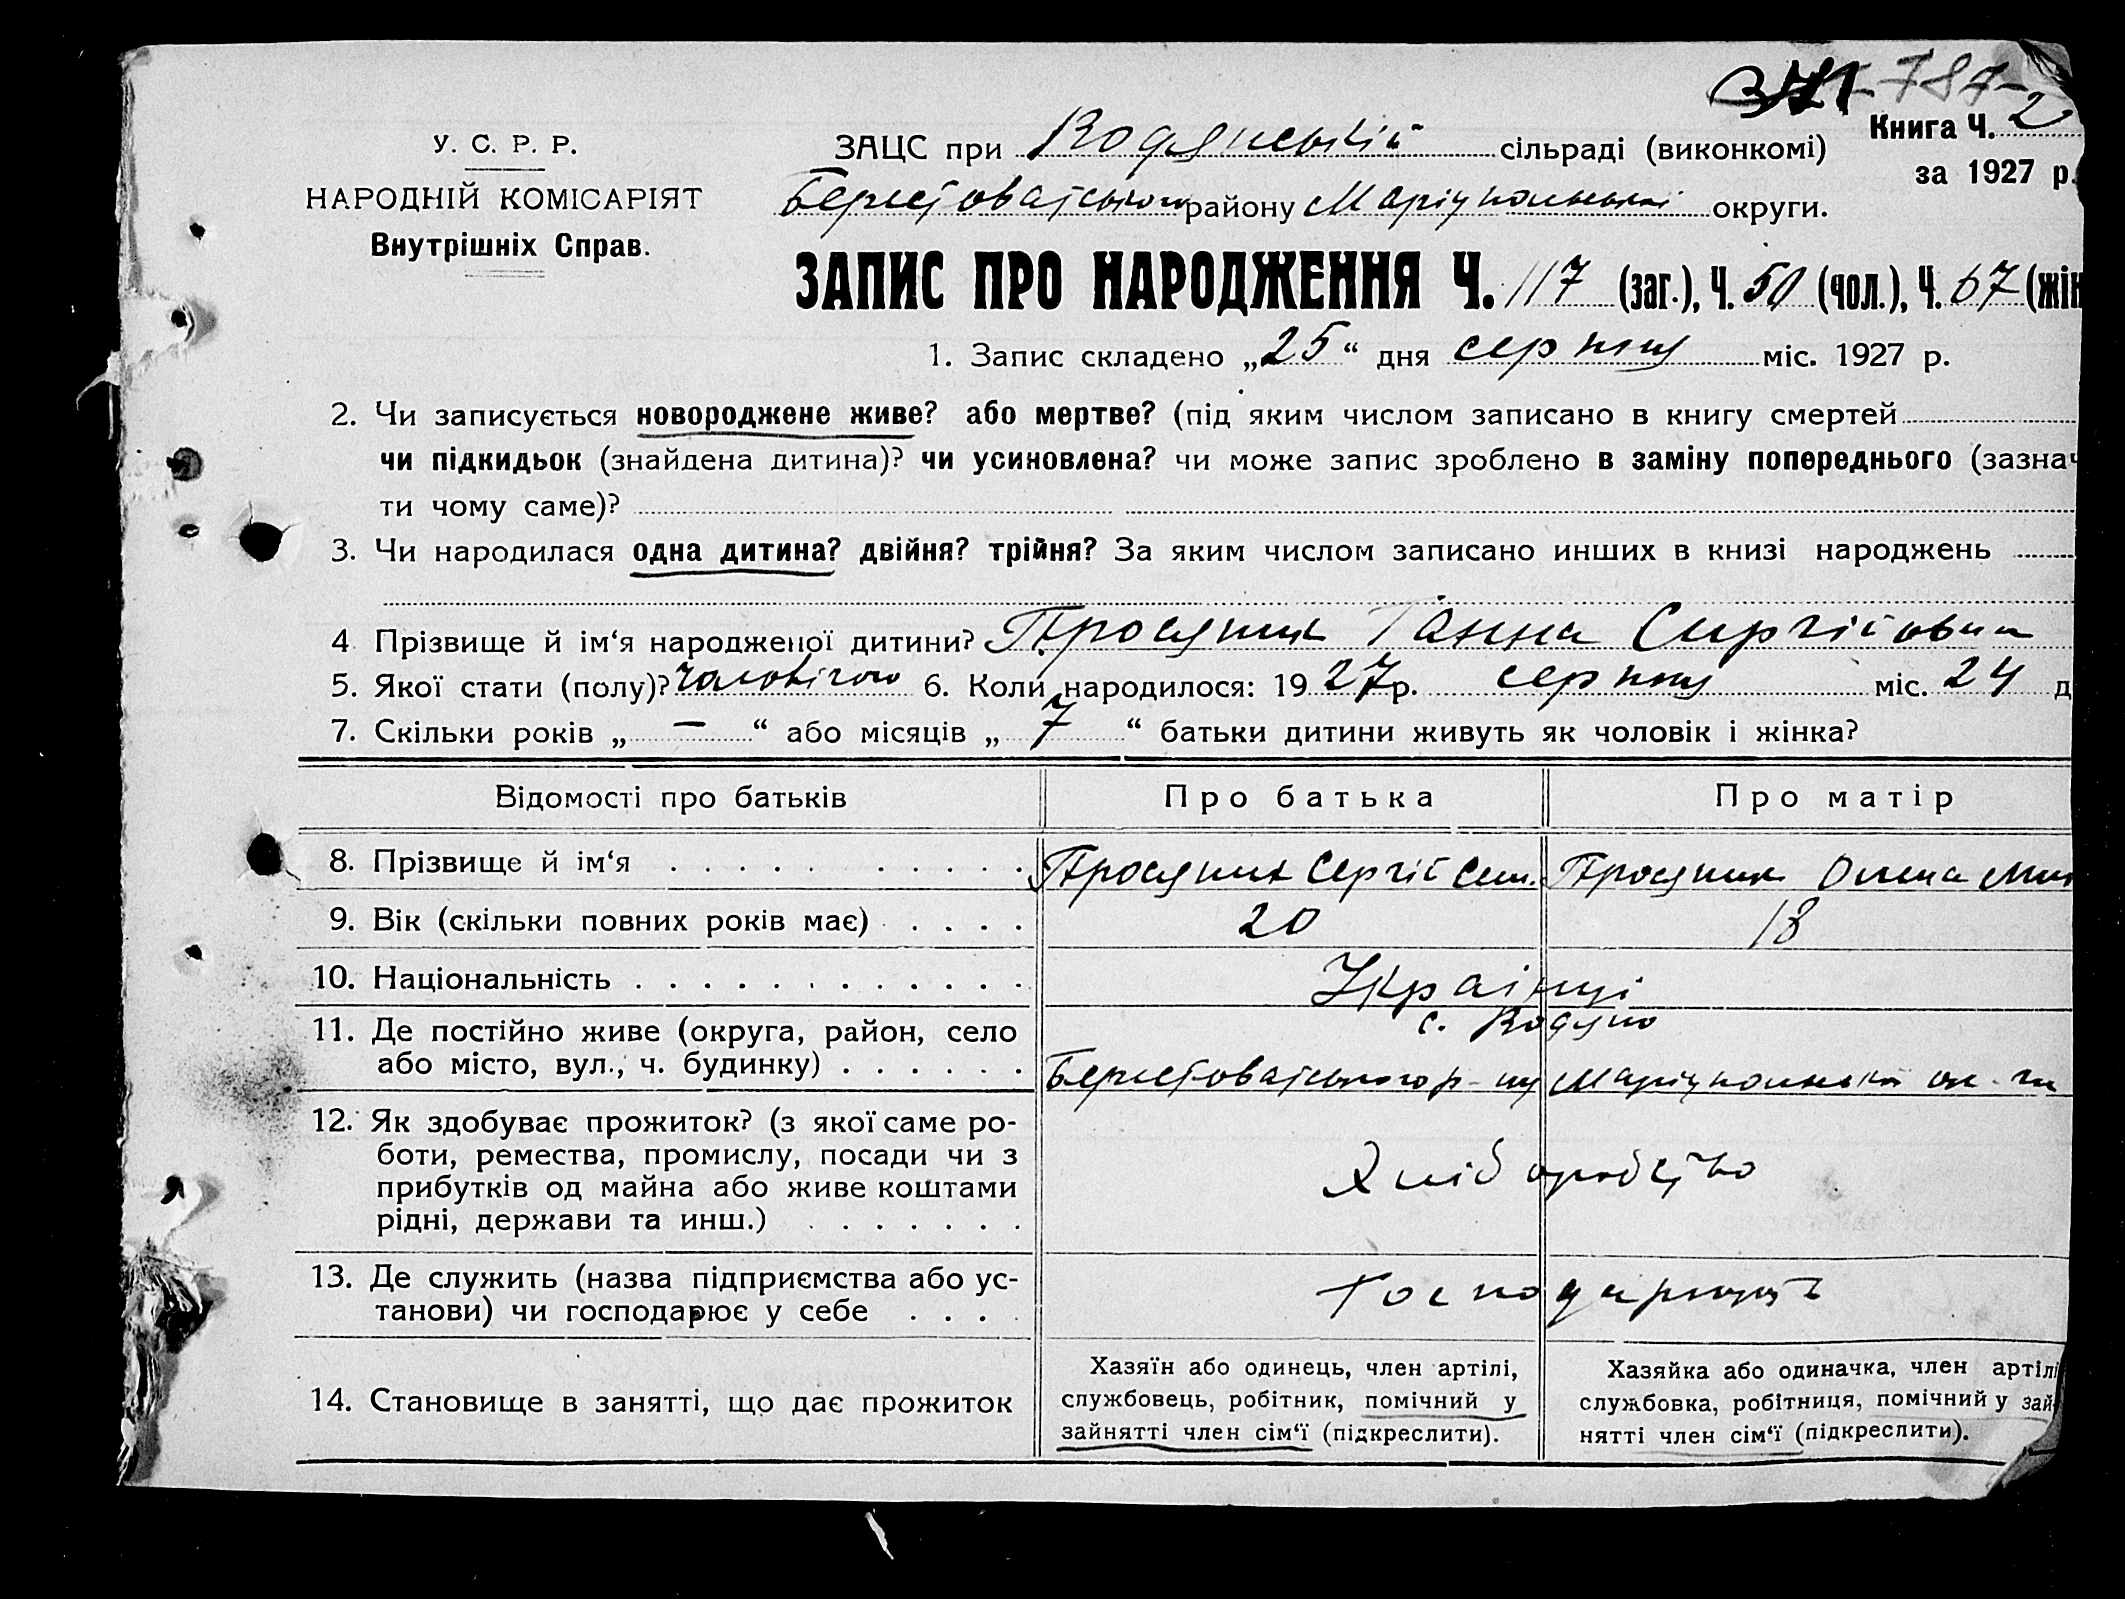 371 - 787 -
У. С. Р. Р.
НАРОДНІЙ КОМІСАРІЯТ
Внутрішніх Справ.
ЗАЦС при Водянській сільраді (виконкомі)
Книга Ч. 2
за 1927 р.
Берестоватського району Маріупольської округи.
ЗАПИС ПРО НАРОДЖЕННЯ Ч. 117 (заг.), Ч. 50 (чол.), Ч. 67 (жін
1. Запис складено „25“ дня серпня міс. 1927 р.
2. Чи записується новороджене живе? або мертве? (під яким числом записано в книгу смертей
чи підкидьок (знайдена дитина)? чи усиновлена? чи може запис зроблено в заміну попереднього (зазнач
ти чому саме)?
3. Чи народилася одна дитина? двійня? трійня? За яким числом записано инших в книзі народжень
4 Прізвище й ім‘я народженої дитини? Просяник Ганна Сергіёвна
5. Якої стати (полу)? чоловічою 6. Коли народилося: 1927 р. серпня міс. 24 д
7. Скільки років „ — “ або місяців „ 7 “ батьки дитини живуть як чоловік і жінка?
Відомості про батьків Про батька Про матір
8. Прізвище й ім‘я Просяник Сергій Сем. Просяник Олена
9. Вік (скільки повних років має) 20 18
10. Національність Українці
11. Де постійно живе (округа, район, село с. Водяно
або місто, вул., ч. будинку) Берестоватського р-ну Маріупольської ок-ги
12. Як здобуває прожиток? (з якої саме ро-
боти, ремества, промислу, посади чи з Хліборобство
прибутків од майна або живе коштами
рідні, держави та инш.)
13. Де служить (назва підприємства або ус- Господарюють
танови) чи господарює у себе
14. Становище в занятті, що дає прожиток
Хазяїн або одинець, член артілі,
службовець, робітник, помічний у
зайнятті член сім‘ї (підкреслити).
Хазяйка або одиначка, член артілі
службовка, робітниця, помічний у зай-
нятті член сім‘ї (підкреслити).